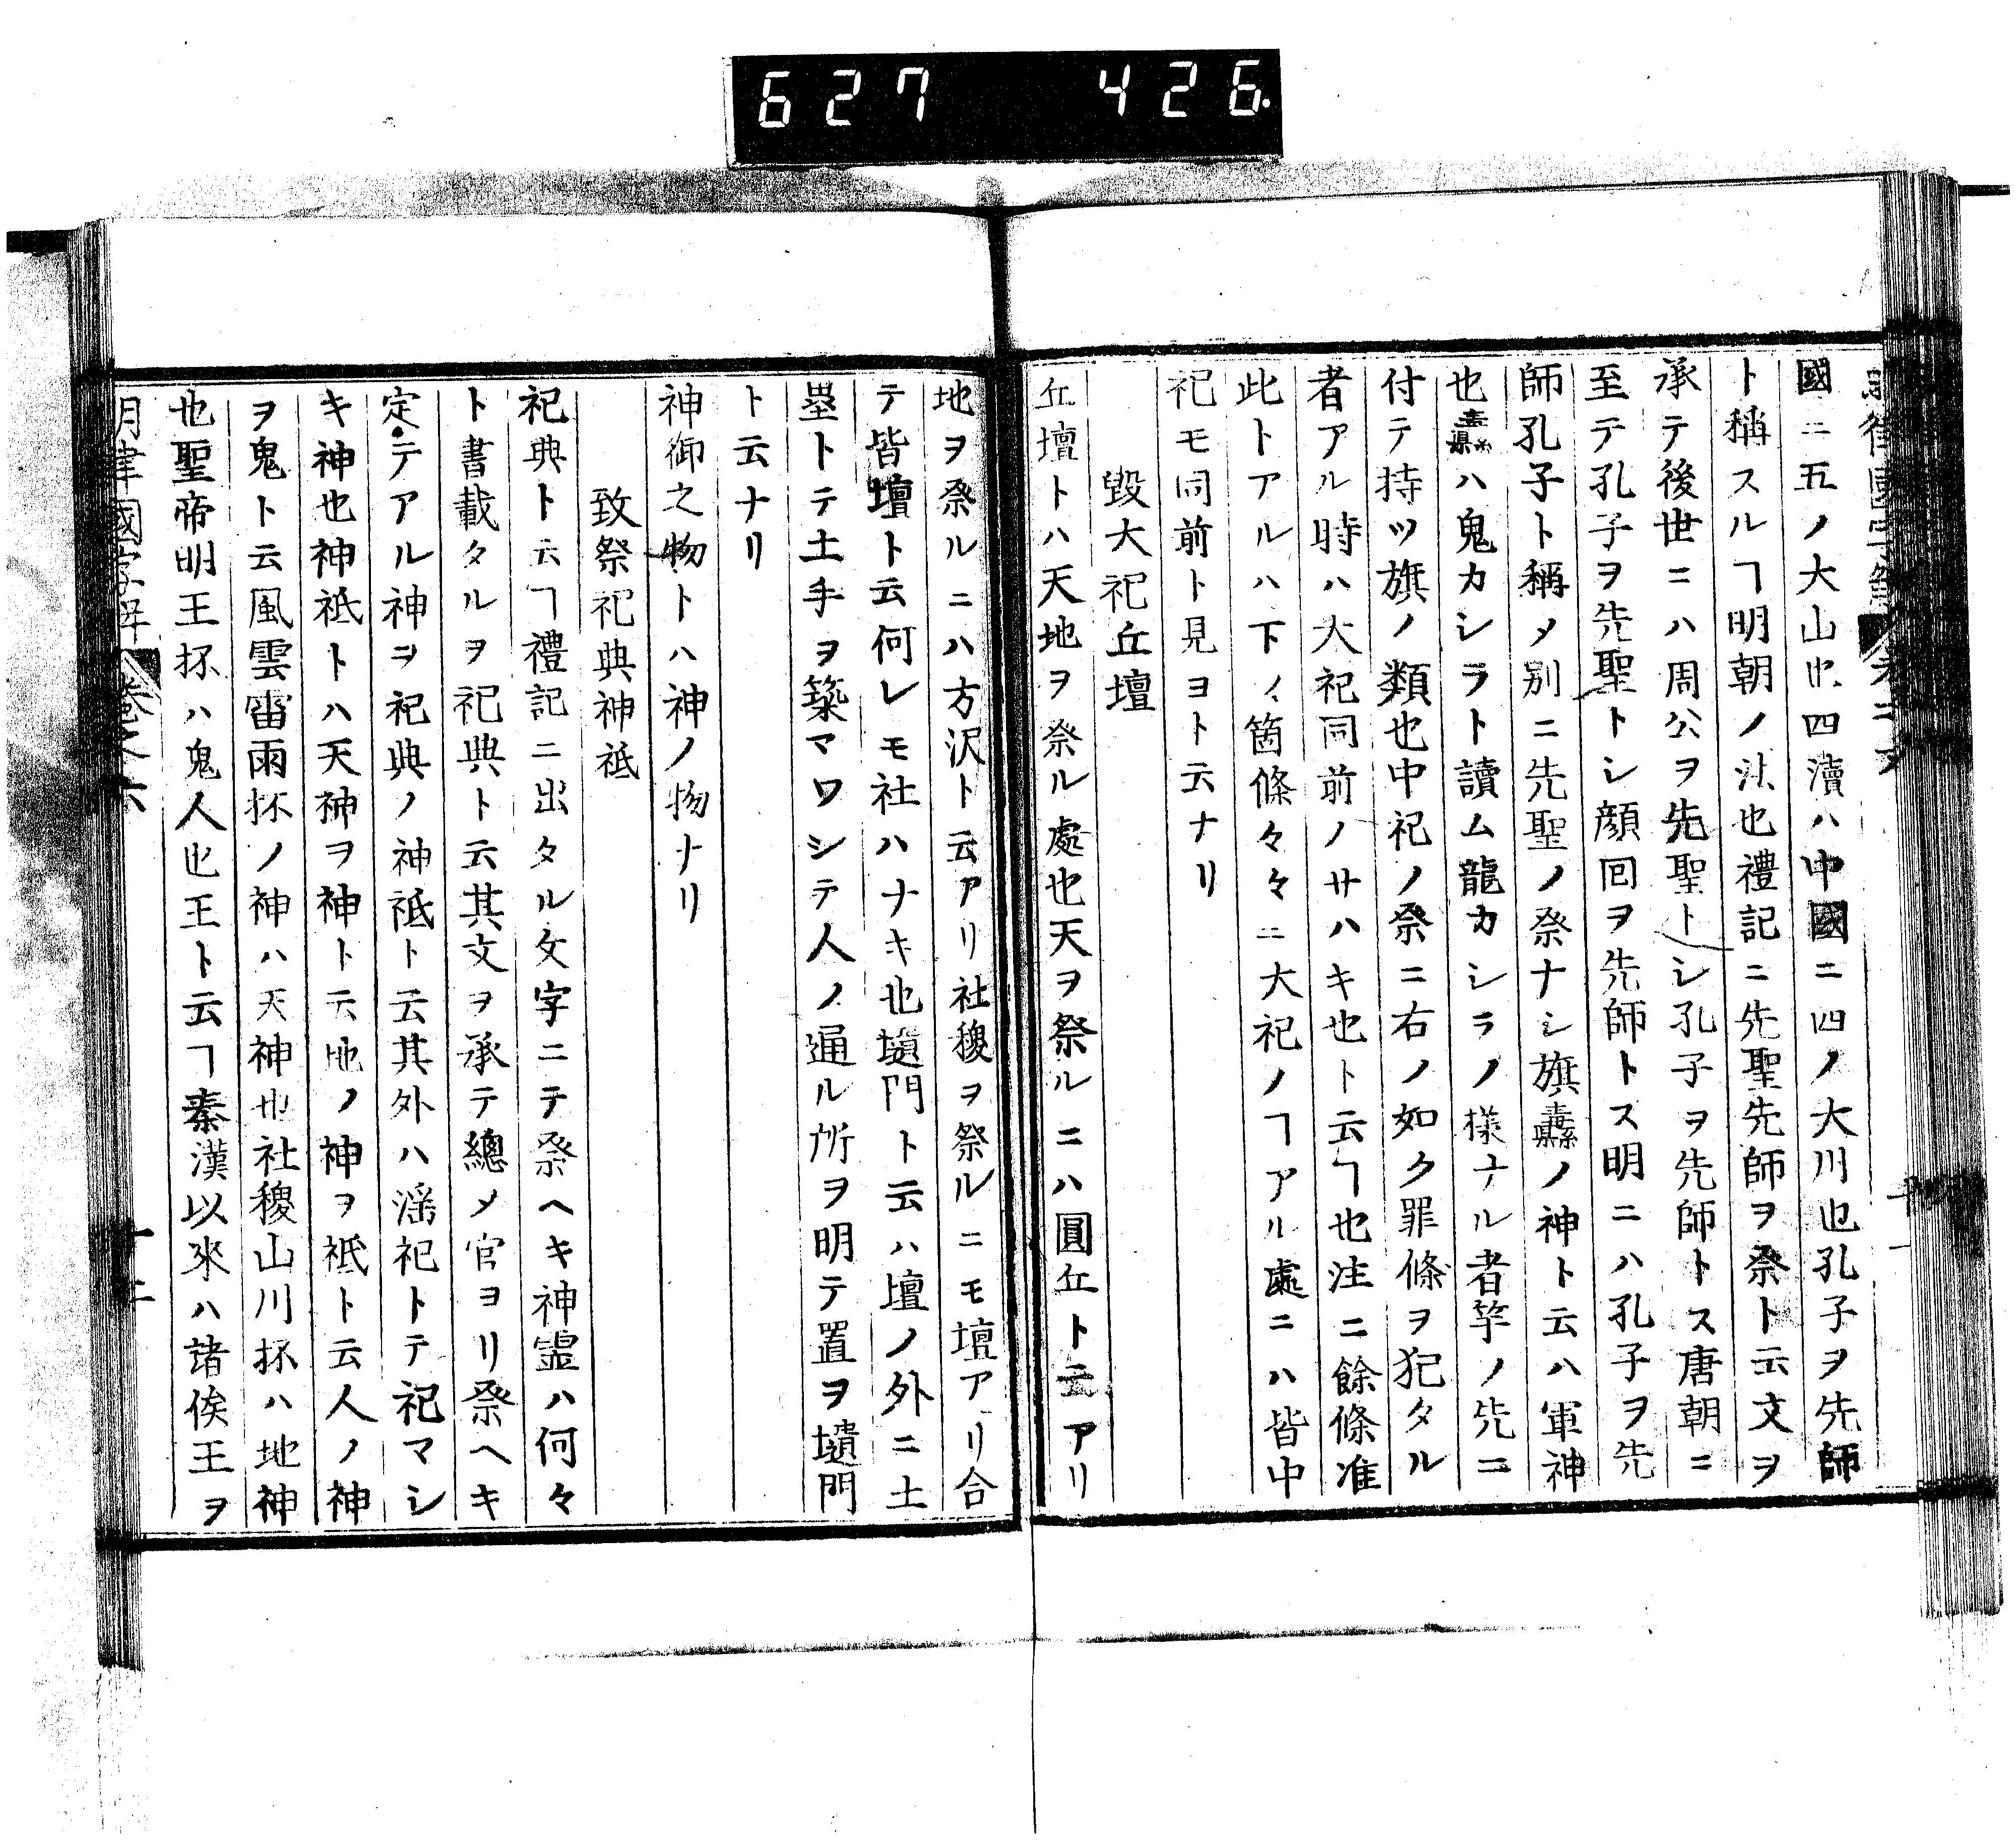 627 426
國ニ五ノ大山也四瀆ハ中國ニ四ノ大川也孔子ヲ先師
ト稱スルヿ明朝ノ法也禮記ニ先聖先師ヲ祭ト云文ヲ
承テ後世ニハ周公ヲ先聖トシ孔子ヲ先師トス唐朝ニ
至テ孔子ヲ先聖トシ顔回ヲ先師トス明ニハ孔子ヲ先
師孔子ト稱メ別ニ先聖ノ祭ナシ旗纛ノ神ト云ハ軍神
也纛ハ鬼カシラト讀ム龍カシラノ樣ナル者竿ノ先ニ
付テ持ツ旗ノ類也中祀ノ祭ニ右ノ如ク罪條ヲ犯タル
者アル時ハ大祀同前ノサハキ也ト云ヿ也注ニ餘條准
此トアルハ下ノ箇條々々ニ大祀ノヿアル處ニハ皆中
祀モ同前ト見ヨト云ナリ
毀大祀丘壇
丘壇トハ天地ヲ祭ル處也天ヲ祭ルニハ圓丘ト云アリ
地ヲ祭ルニハ方沢ト云アリ社稷ヲ祭ルニモ壇アリ合
テ皆壇ト云何レモ社ハナキ也壝門ト云ハ壇ノ外ニ土
壘トテ土手ヲ築マワシテ人ノ通ル所ヲ明テ置ヲ壝門
ト云ナリ
神御之物トハ神ノ物ナリ
致祭祀典神祗
祀典ト云ヿ禮記ニ出タル文字ニテ祭ヘキ神霊ハ何々
ト書載タルヲ祀典ト云其文ヲ承テ總メ官ヨリ祭ヘキ
定テアル神ヲ祀典ノ神祗ト云其外ハ淫祀トテ祀マシ
キ神也神祗トハ天神ヲ神ト云地ノ神ヲ祗ト云人ノ神
ヲ鬼ト云風雲雷雨抔ノ神ハ天神也社稷山川抔ハ地神
也聖帝明王抔ハ鬼人也王ト云ヿ秦漢以來ハ諸侯王ヲ
明律國字解 卷之六